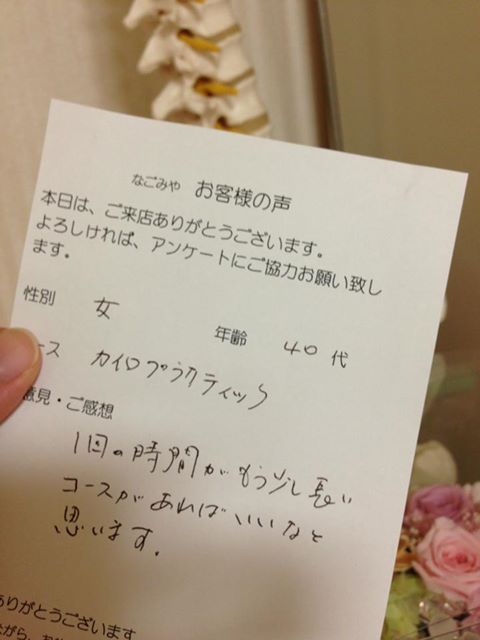 なごみや お客様の声
本日は、ご来店ありがとうございます。
よろしければ、アンケートにご協力お願い致し
ます。
性別 女 年齢 40代
ース カイロプラクティック
意見・ご感想
1回の時間がもう少し長い
コースがあればいいなと
思います。
ありがとうございます